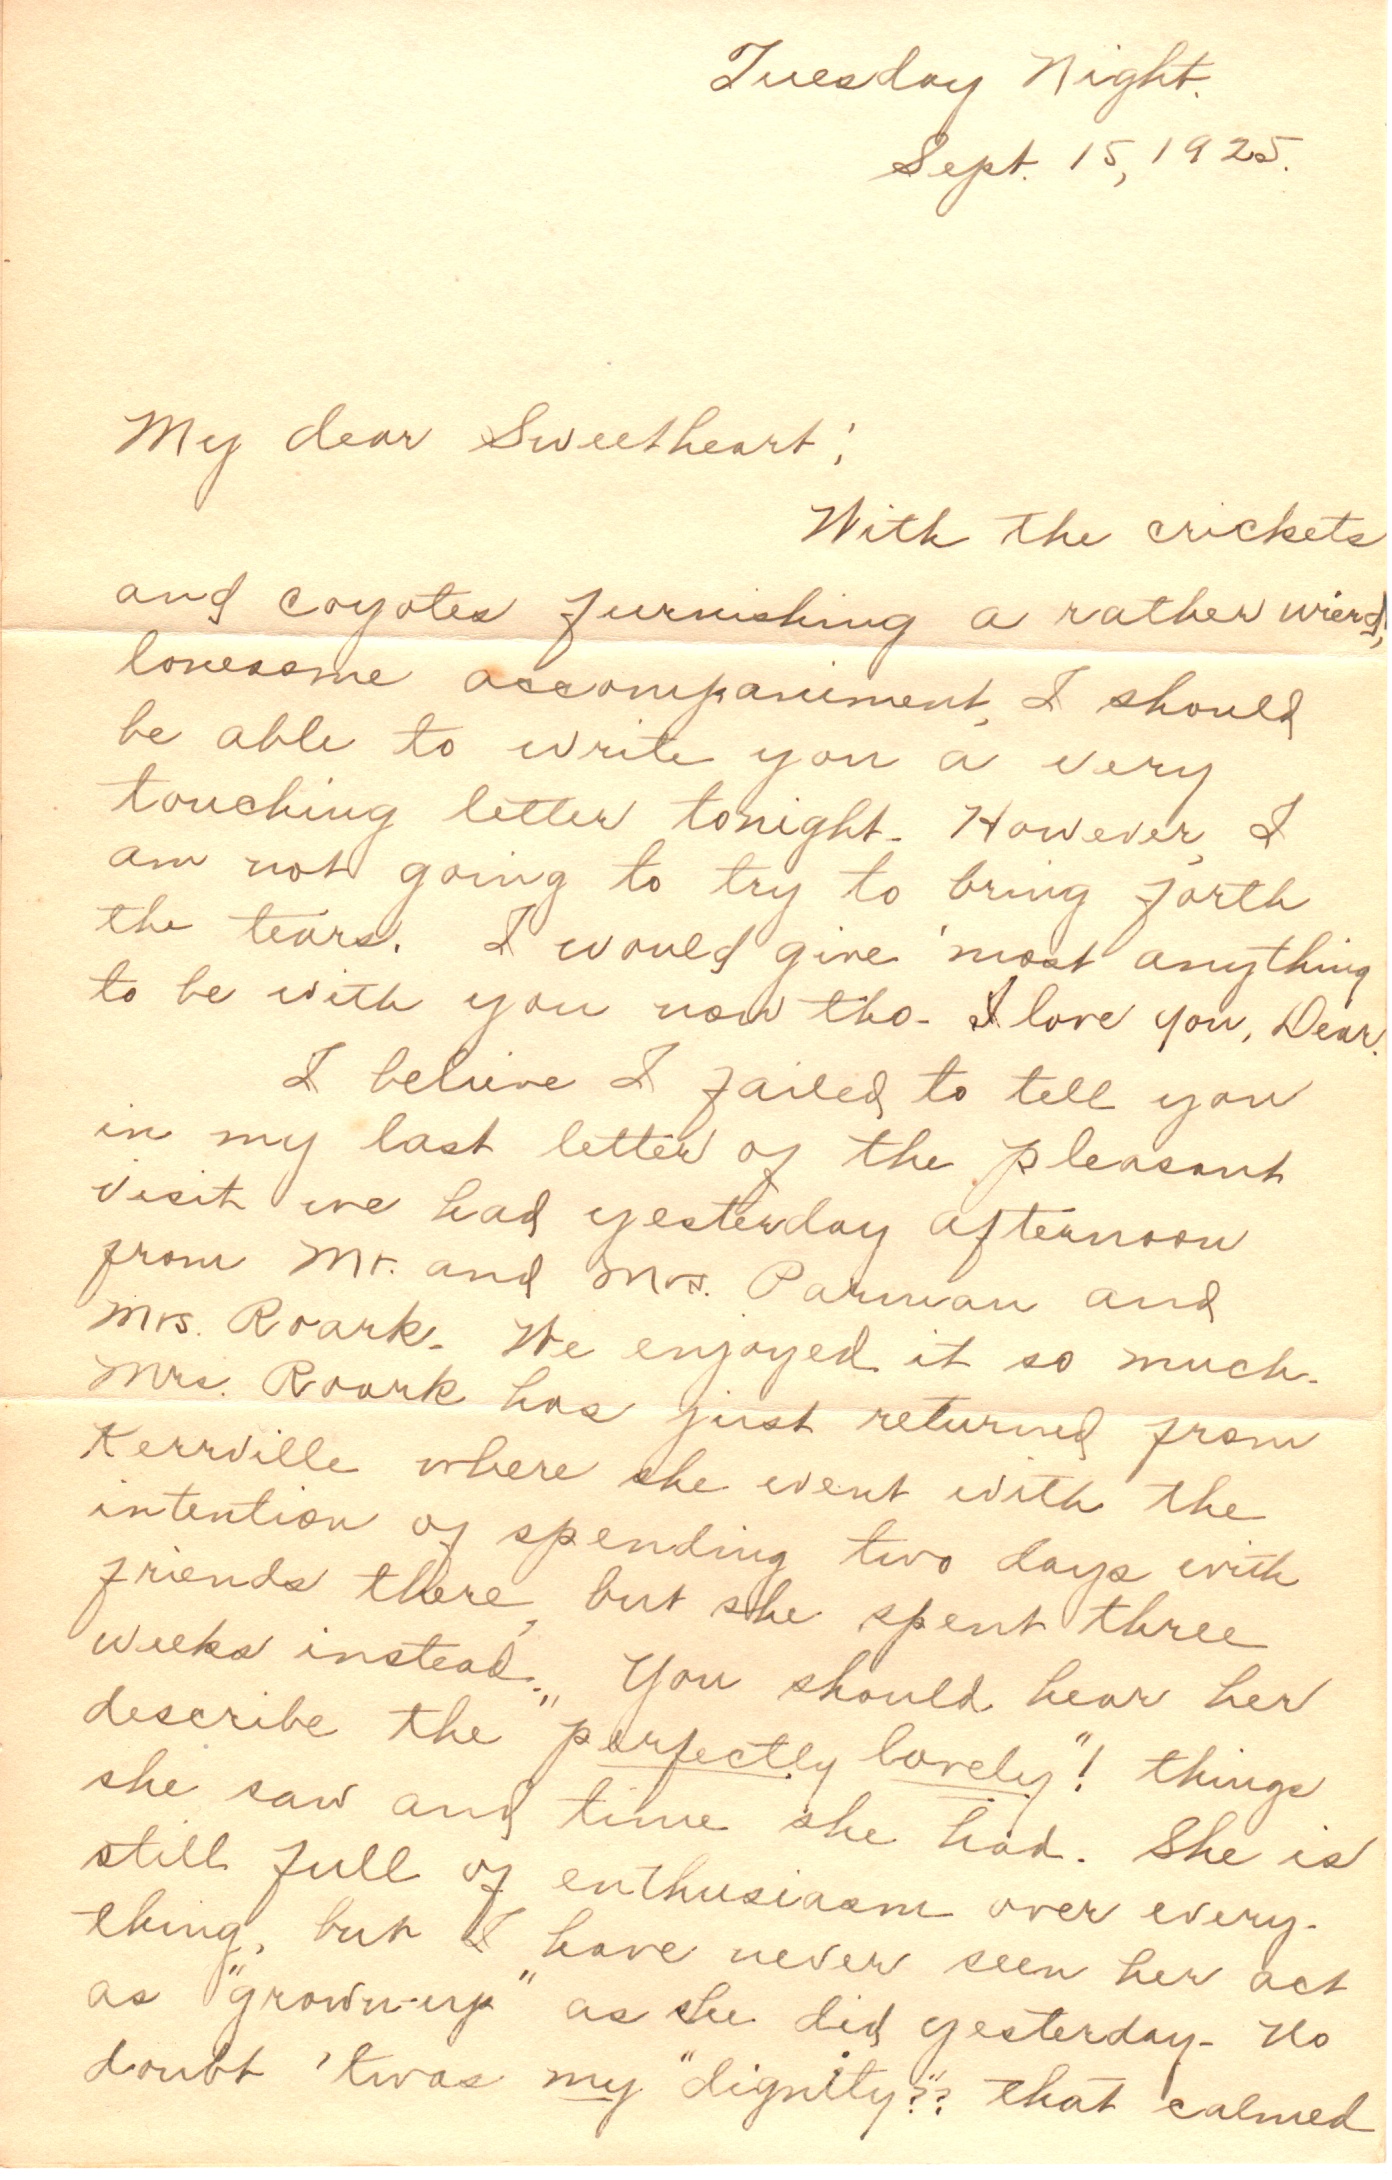 Tuesday Night.
Sept. 15, 1925.
My dear Sweetheart;
With the crickets
and coyotes furnishing a rather wierd,
lonesome accompaniment, I should
be able to write you a very
touching letter tonight. However, I
am not going to try to bring forth
the tears. I would give 'most anything
to be with you now tho. I love you, Dear.
I believe I failed to tell you
in my last letter of the pleasant
visit we had yesterday afternoon
from Mr. and Mrs. Parman and
Mrs. Roark. We enjoyed it so much.
Mrs. Roark has just returned from
Kerrville where she went with the
intention of spending two days with
friends there, but she spent three
weeks instead. You should hear her
describe the "perfectly lovely"! things
she saw and time she had. She is
still full of enthusiasm over every-
thing, but I have never seen her act
as "grown-up" as she did yesterday. No
doubt 'twas my "dignity"?? that calmed